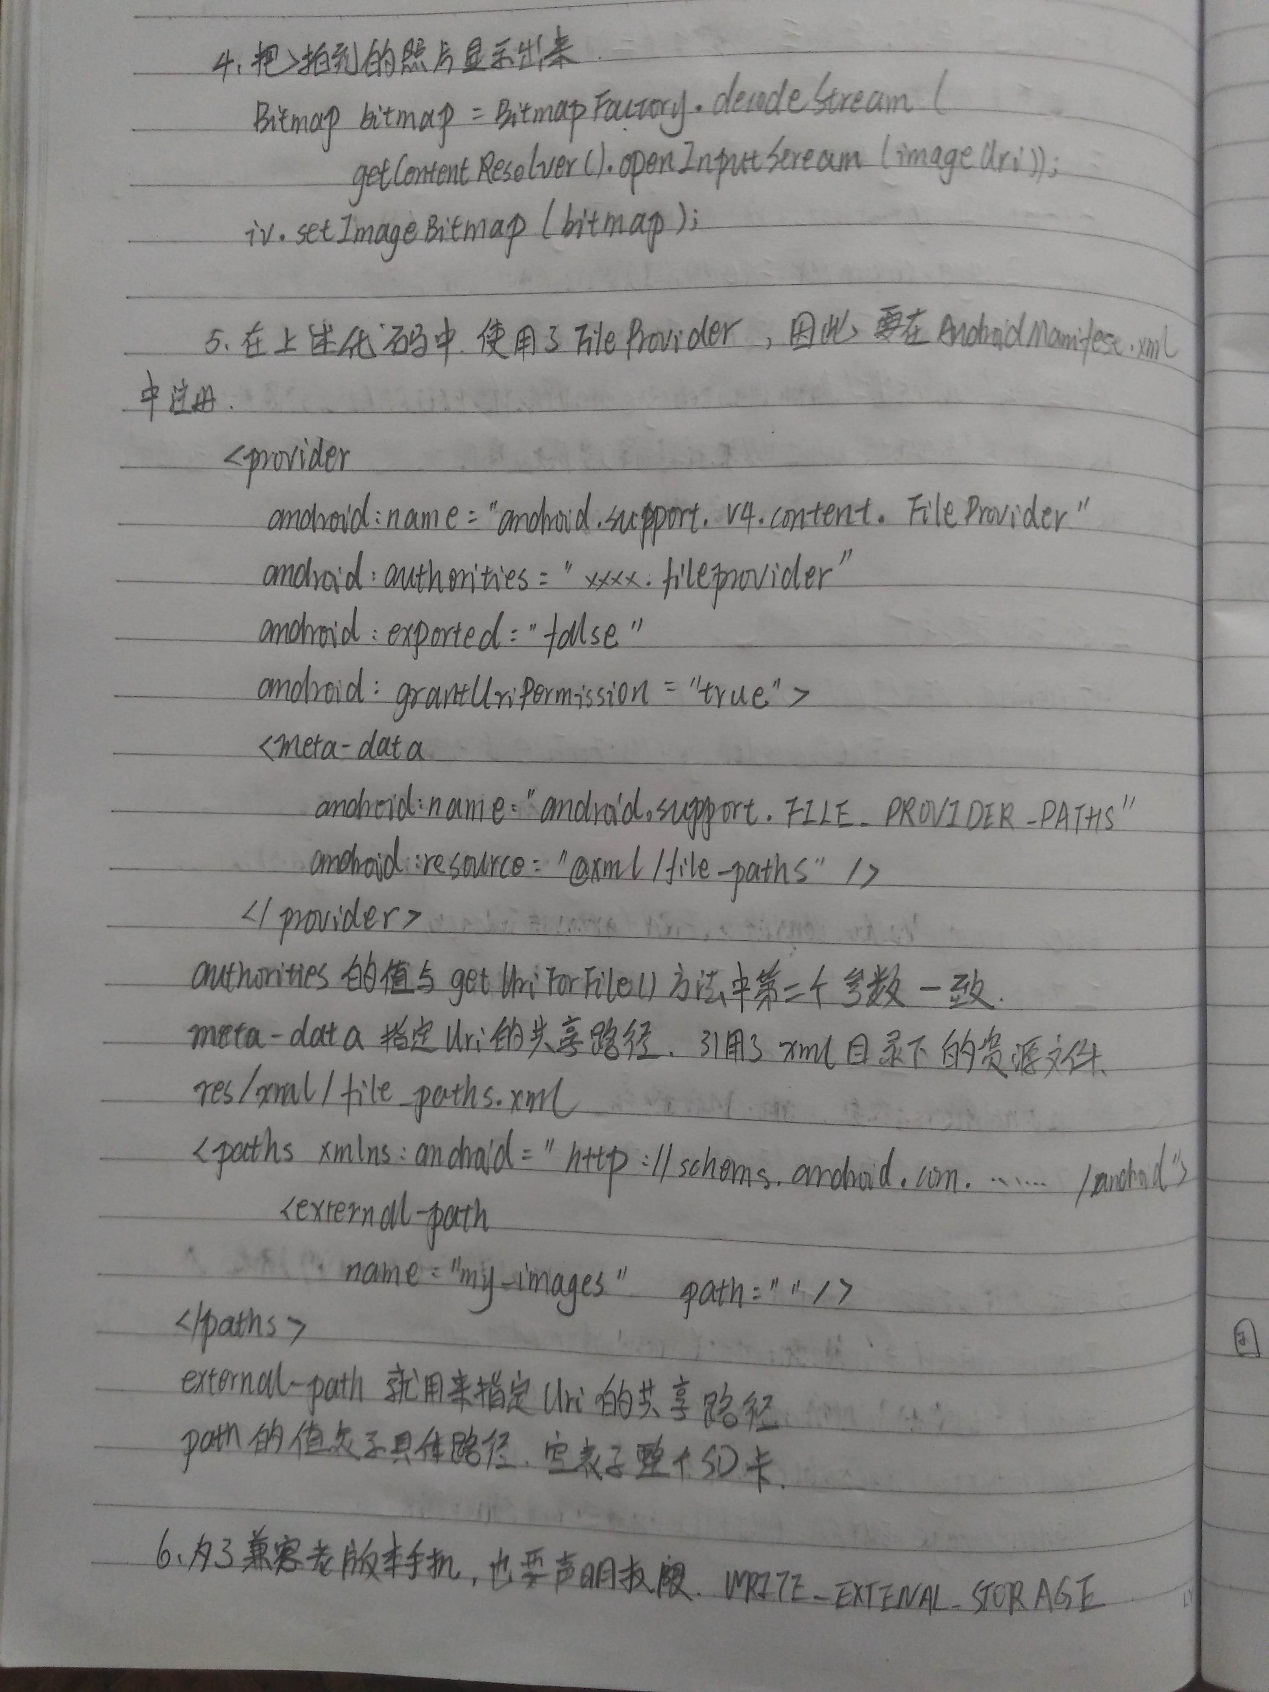 4、把拍到的照片显示出来
Bitmap bitmap = BitmapFactory.decodeStream(
getContentResolver().openInputStream(imageUri));
iv.setImageBitmap(bitmap);
5、在上述代码中,使用了FileProvider,因此,要在AndroidManifest.xml
中注册.
<provider
android:name="android.support.v4.content.FileProvider"
android:authorities="xxxx.fileprovider"
android:exported="false"
android:grantUriPermission="true">
<meta-data
android:name="android.support.FILE_PROVIDER_PATHS"
android:resource="@xml/file-paths" />
</provider>
authorities的值与getUriForFile()方法中第二个参数一致.
meta-data指定Uri的共享路径、引用了xml目录下的资源文件、
res/xml/file_paths.xml
<paths xmlns:android="http://schems.android.com. ...... /android">
<external-path
name="my_images" path="" />
</paths>
external-path就用来指定Uri的共享路径
path的值表示具体路径、空表示整个SD卡.
6、为了兼容老版本手机,也要声明权限. WRITE_EXTENAL_STORAGE